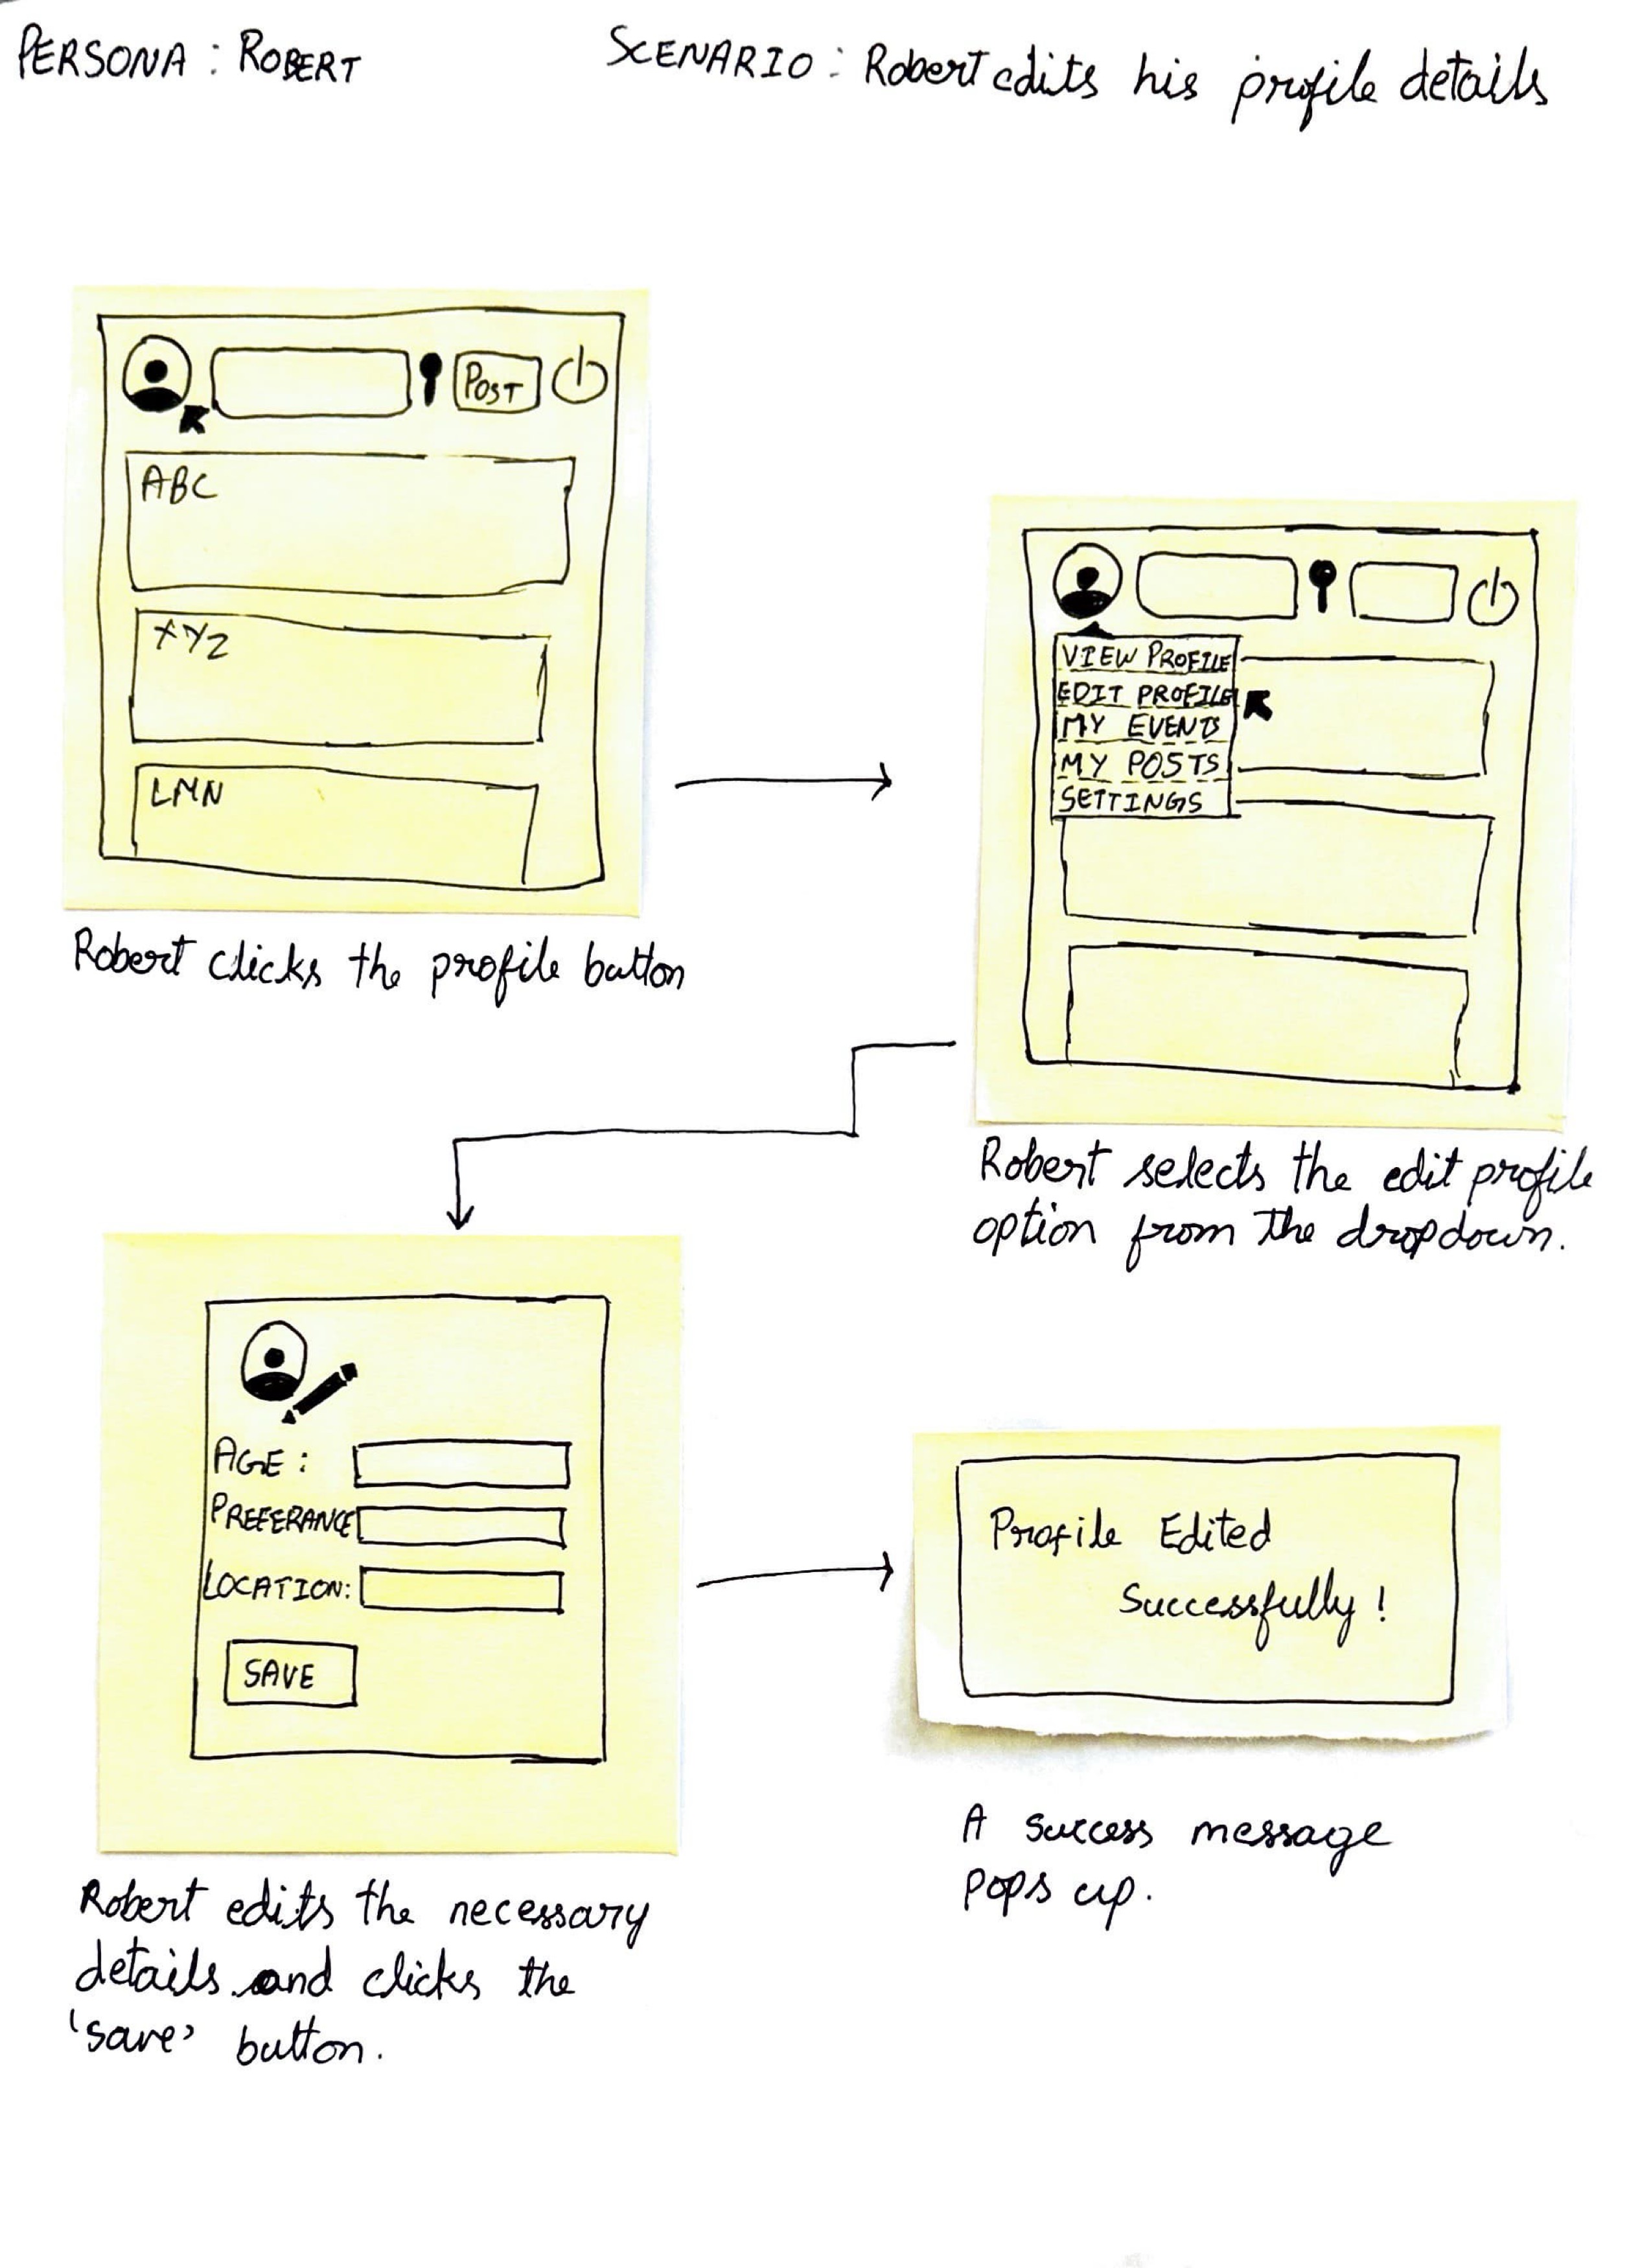 PERSONA : ROBERT
SCENARIO : Robert edits his profile details
POST
ABC
XYZ
LMN
Robert clicks the profile button
VIEW PROFILE
EDIT PROFILE
MY EVENTS
MY POSTS
SETTINGS
Robert selects the edit profile
option from the dropdown.
AGE :
PREFERANCE
LOCATION:
SAVE
Robert edits the necessary
details and clicks the
'save' button.
Profile Edited
Successfully !
A success message
pops up.